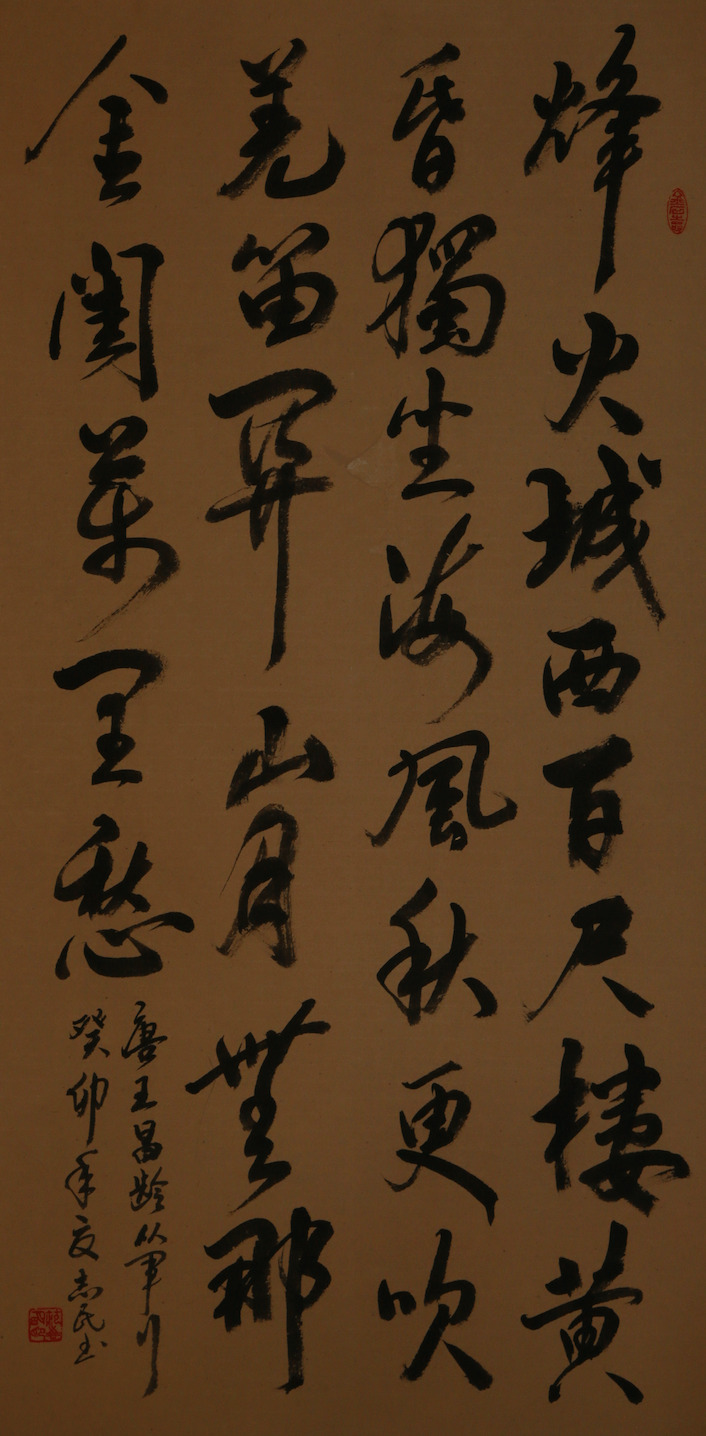 烽火城西百尺樓黄
昏獨坐海風秋更吹
羌笛関山月無那
金閨萬里愁
唐王昌龄从軍行
癸卯年夏志民书